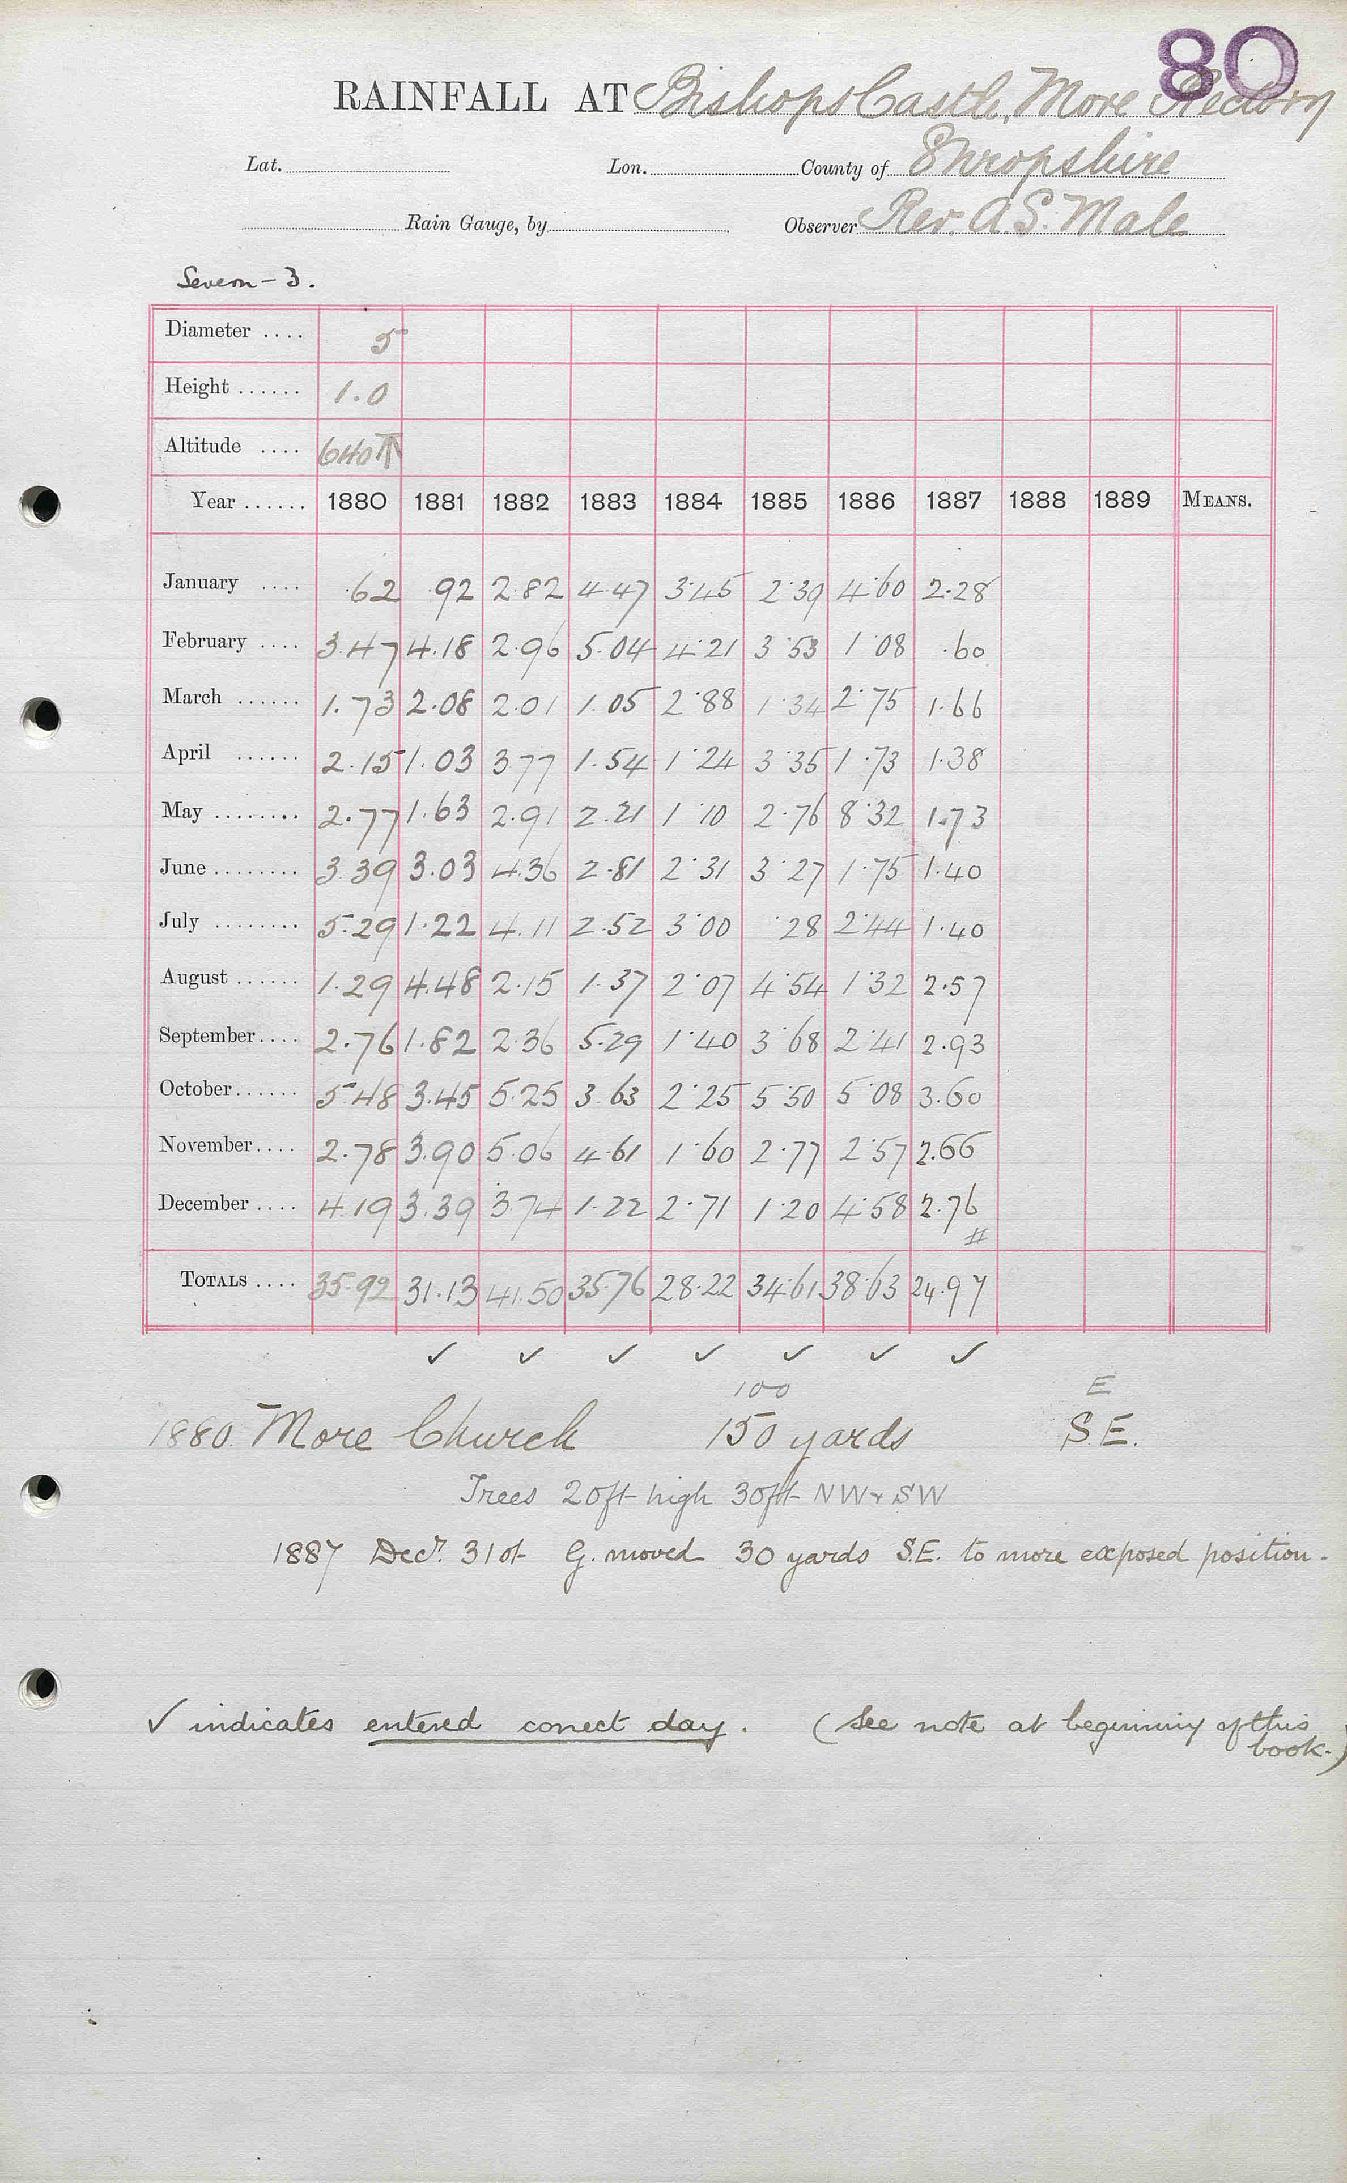 80
RAINFALL AT Bishops Castle, More Rectory
Lat. Lon. County of Shropshire
Rain Gauge, by Observer Rev. A.S. Male
Severn - 3.
Diameter .... 5
Height ...... 1.0
Altitude .... 640 T
Year ...... 1880 1881 1882 1883 1884 1885 1886 1887 1888 1889 MEANS.
January .... .62 .92 2.82 4.47 3.45 2.39 4.60 2.28
February .... 3.47 4.18 2.96 5.04 4.21 3.53 1.08 .60
March ...... 1.73 2.08 2.01 1.05 2.88 1.34 2.75 1.66
April ...... 2.15 1.03 3.77 1.54 1.24 3.35 1.73 1.38
May ........ 2.77 1.63 2.91 2.21 1.10 2.76 8.32 1.73
June ........ 3.39 3.03 4.36 2.81 2.31 3.27 1.75 1.40
July ........ 5.29 1.22 4.11 2.52 3.00 .28 2.44 1.40
August ...... 1.29 4.48 2.15 1.37 2.07 4.54 1.32 2.57
September .... 2.76 1.82 2.36 5.29 1.40 3.68 2.41 2.93
October ...... 5.48 3.45 5.25 3.63 2.25 5.50 5.08 3.60
November .... 2.78 3.90 5.06 4.61 1.60 2.77 2.57 2.66
December .... 4.19 3.39 3.74 1.22 2.71 1.20 4.58 2.76
#
TOTALS .... 35.92 31.13 41.50 35.76 28.22 34.61 38.63 24.97
✓ ✓ ✓ ✓ ✓ ✓ ✓
100 E
1880 More Church 150 yards S.E.
Trees 20ft high 30ft NW + SW
1887 Decr. 31st G. moved 30 yards S.E. to more exposed position.
✓ indicates entered correct day. (See note at beginning of this
book.)